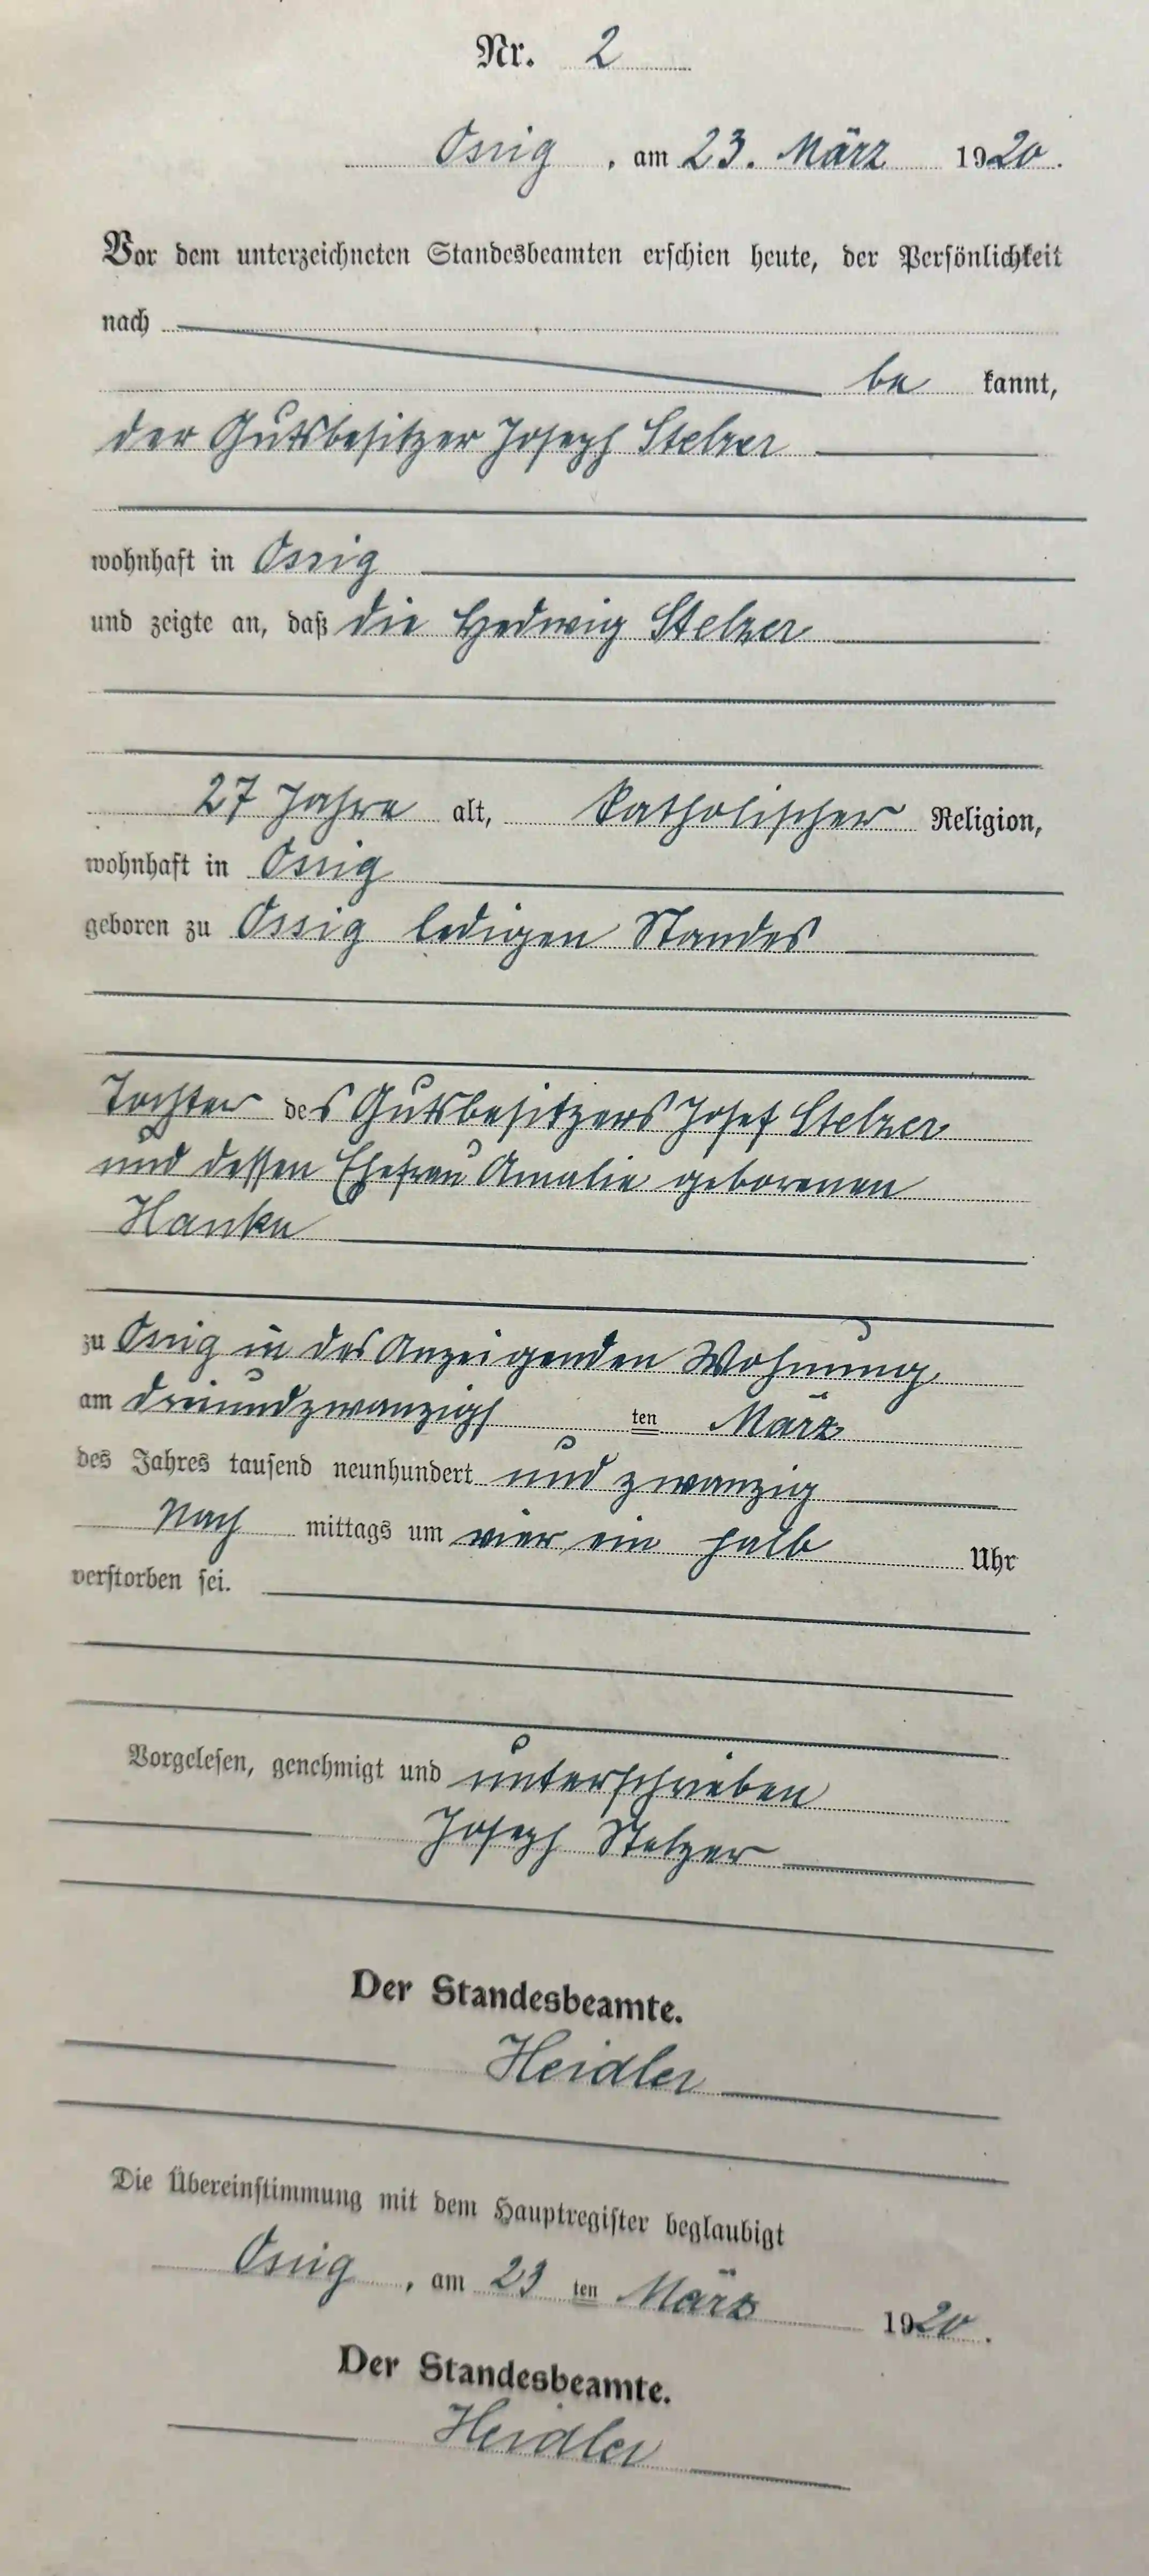 Nr. 2
Ossig, am 23. März 1920.
Vor dem unterzeichneten Standesbeamten erschien heute, der Persönlichkeit
nach
be kannt,
der Gutsbesitzer Joseph Stelzer
wohnhaft in Ossig
und zeigte an, daß die Hedwig Stelzer
27 Jahre alt, katholischer Religion,
wohnhaft in Ossig
geboren zu Ossig ledigen Standes
Tochter des Gutsbesitzers Josef Stelzer
und dessen Ehefrau Amalie geborenen
Hanke
zu Ossig in des Anzeigenden Wohnung
am dreiundzwanzigs ten März
des Jahres tausend neunhundert und zwanzig
Nach mittags um vier ein halb Uhr
verstorben sei.
Vorgelesen, genehmigt und unterschrieben
Joseph Stelzer
Der Standesbeamte.
Heidler
Die Übereinstimmung mit dem Hauptregister beglaubigt
Ossig, am 23 ten März 1920.
Der Standesbeamte.
Heidler